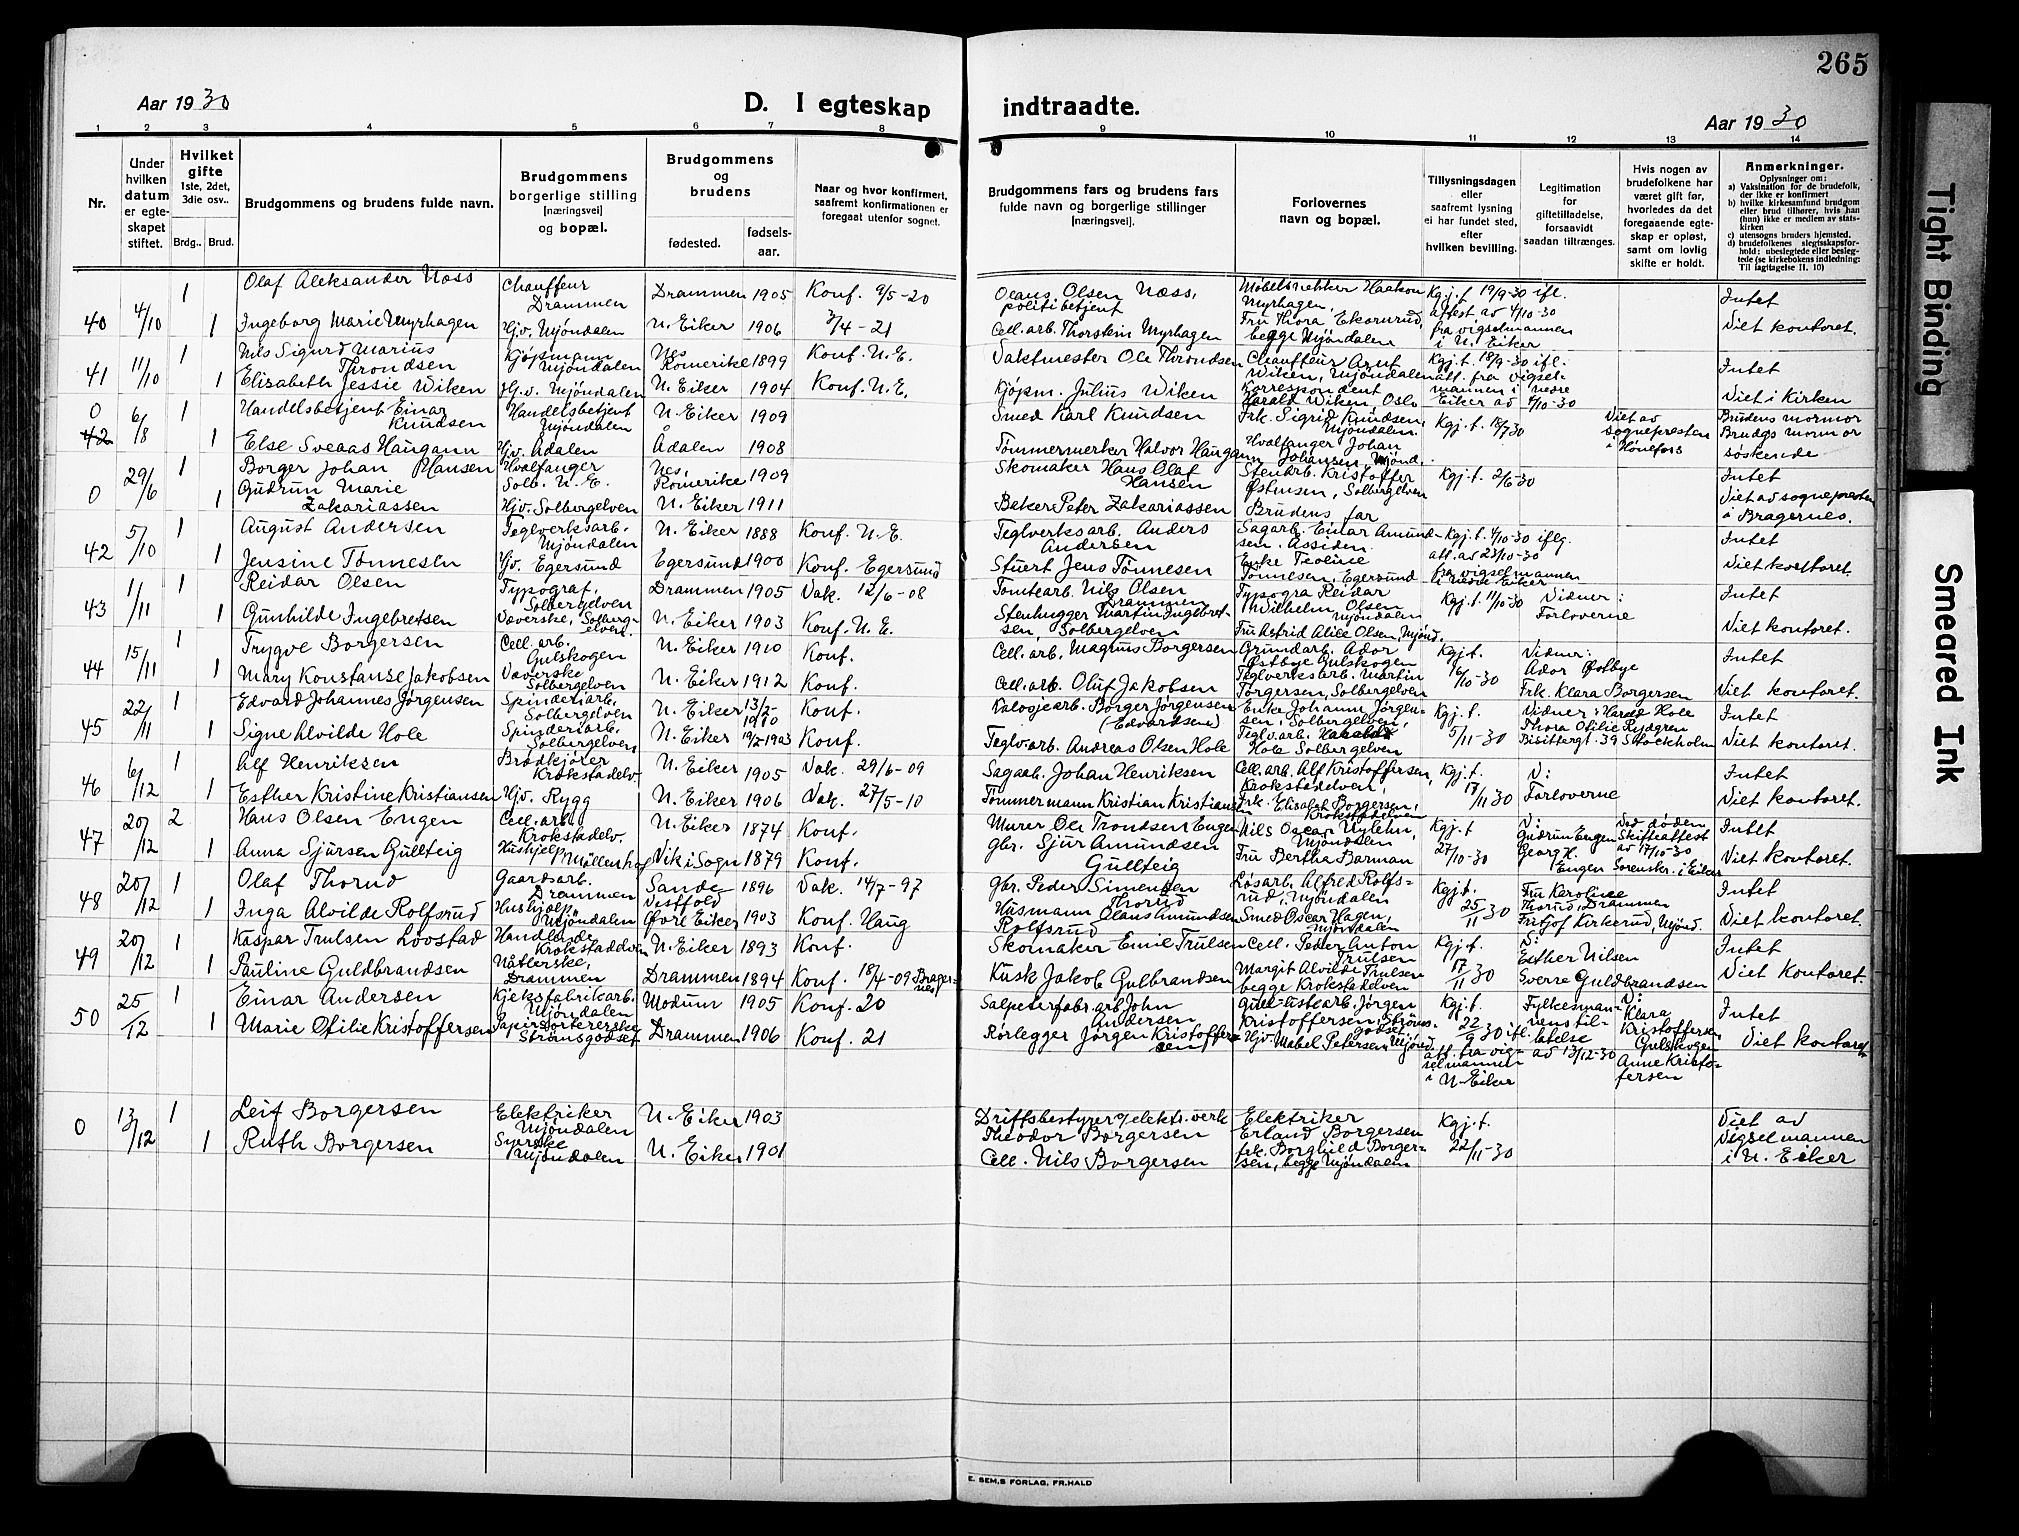 265
Aar 1930
D. I egteskap
indtraadte.
Aar 1930
1 2 3 4 5 6 7 8 9 10 11 12 13 14
Nr.
Under
hvilken
datum
er egte-
skapet
stiftet.
Hvilket
gifte
1ste, 2det,
3die osv..
Brdg.. Brud.
Brudgommens og brudens fulde navn.
Brudgommens
borgerlige stilling
[næringsvei]
og bopæl.
Brudgommens
og
brudens
fødested.
fødsels-
aar.
Naar og hvor konfirmert,
saafremt konfirmationen er
foregaat utenfor sognet.
Brudgommens fars og brudens fars
fulde navn og borgerlige stillinger
[næringsvei].
Forlovernes
navn og bopæl.
Tillysningsdagen
eller
saafremt lysning
ei har fundet sted,
efter
hvilken bevilling.
Legitimation
for
giftetilladelse,
forsaavidt
saadan tiltrænges.
Hvis nogen av
brudefolkene har
været gift før,
hvorledes da det
foregaaende egte-
skap er opløst,
samt om lovlig
skifte er holdt.
Anmerkninger.
Oplysninger om:
a) Vaksination for de brudefolk,
der ikke er konfirmert
b) hvilke kirkesamfund brudgom
eller brud tilhører, hvis han
(hun) ikke er medlem av stats-
kirken
c) utensogns bruders hjemsted.
d) brudefolkenes slegtsskapsfor-
hold: ubeslegtede eller besleg-
tede (se kirkebokens indledning:
Til iagttagelse II. 10)
40 4/10 1 Olaf Aleksander Næss Chauffeur Drammen Drammen 1905 Konf. 9/5-20 Olaus Olsen Næss, politibetjent Møbelsnekker Haakon Myrhagen Kgj. f. 19/9-30 ifl. Intet
1 Ingeborg Marie Myrhagen Hjv. Mjøndalen N. Eiker 1906 3/4-21 Cell. arb. Thorstein Myrhagen Fru Thora Ekornrud, begge Mjøndalen attest av 4/10-30 fra vigselmannen i N. Eiker Viet kontoret.
41 11/10 1 Nils Sigurd Marius Throndsen Kjøpmann Mjøndalen Nes Romerike 1899 Konf. N. E. Vaktmester Ole Throndsen Chauffeur Arnt Wiken, Mjøndalen Kgj. f. 18/9-30 ifl. Intet
1 Elizabeth Jessie Wiken Hj.v. Mjøndalen N. Eiker 1904 Konf. N. E. Kjøpm. Julius Wiken Korrespondent Harald Wiken Oslo att. fra vigsel- mannen i nedre Eiker av 4/10-30 Viet i Kirken
0 42 6/8 1 Handelsbetjent Einar Knudsen Handelsbetjent Mjøndalen N. Eiker 1909 Smed Karl Knudsen Frk. Sigrid Knudsen, Mjøndalen Kgj. f. 18/7 30 Viet av sognepresten i Hønefoss Brudens mormor
1 Else Sveaas Haugann Hjv. Ådalen Ådalen 1908 Tømmermerker Halvor Haugann Hvalfanger Johan Johansen, Mjønd. Brudgs mormor søskende
0 29/6 1 Borger Johan Hansen Hvalfanger Solb. N. E. Nes, Romerike 1909 Skomaker Hans Olaf Hansen Stenarb. Kristoffer Østensen, Solbergelven Kgj. f. 2/6-30 Intet
1 Gudrun Marie Zakariassen Hjv. Solbergelven N. Eiker 1911 Baker Peter Zakariassen Brudens far Viet av sognepresten i Bragernes.
42 5/10 1 August Andersen Teglverksarb. Mjøndalen N. Eiker 1888 Konf. N. E. Teglverksarb. Anders Andersen Sagarb. Einar Amund- sen. Assiden. Kgj. f. 4/10-30 iflg. Intet
1 Jensine Tønnesen Hjv. Egersund Egersund 1900 Konf. Egersund Stuert Jens Tønnesen Enke Teoline Tønnesen, Egersund att. av 23/10-30 fra vigselmannen i nedre Eiker Viet kontoret.
43 1/11 1 Reidar Olsen Typograf, Solbergelven Drammen 1905 Vak. 12/6-08 Tomtearb. Nils Olsen Drammen Typogra Reidar Wilhelm Olsen Mjøndalen Kgj. f. 11/10-30 Vidner: Forloverne Intet
1 Gunhilde Ingebretsen Væverske, Solberg- elven. N. Eiker 1903 Konf. N. E. Stenhugger Martin Ingebret- sen, Solbergelven Fru Astrid Alice Olsen, Mjønd. Viet kontoret.
44 15/11 1 Trygve Borgersen Cell. arb. Gulskogen N. Eiker 1910 Konf. Cell. arb. Magnus Borgersen Grundarb. Ador Østbye Gulskogen Kgj. f. 16/10-30 Vidner: Ador Østbye Intet
1 Mary Konstanse Jakobsen Væverske Solbergelven N. Eiker 1912 Konf. Cell. arb. Oluf Jakobsen Teglverksarb. Martin Torgersen, Solbergelven Frk. Klara Borgersen Viet kontoret.
45 22/11 1 Edvard Johannes Jørgensen Spinderiarb. Solbergelven N. Eiker 13/2-1910 Konf. Børger Jørgensen (Edvardsen) Enke Johann Jørgen- sen, Solbergelven, Kgj. f. 5/11-30 Vidner: Harald Hole Intet
1 Signe Alvilde Hole Spinderiarb. Solbergelven N. Eiker 19/2-1903 Konf. Teglv. arb. Andreas Olsen Hole Teglv. arb. Harald Hole Solbergelven Thora Otilie Rydgren 39 Stockholm Viet kontoret.
46 6/12 1 Alf Henriksen Brødkjører Krokstadelv. N. Eiker 1905 Vak. 29/6-09 Sagarb. Johan Henriksen Cell. arb. Alf Kristoffersen, Krokstadelven, Kgj. f. 17/11 30 V: Forloverne Intet
1 Esther Kristine Kristiansen Hjv. Rygg N. Eiker 1906 Vak. 27/5-10 Tømmermann Kristian Kristiansen Frk. Elisabet Borgersen, Krokstadelven Viet kontoret.
47 20/12 2 Hans Olsen Engen Cell. arb. Krokstadelv. N. Eiker 1874 Konf. Murer Ole Trondsen Engen Nils Oscar Nylehn, Mjøndalen Kgj. f 27/10-30 V: Gudrun Engen Ved døden Skifteattest av 17/10-30 Intet
1 Anna Sjursen Gullteig Hushjelp Møllenhof Vik i Sogn 1879 Konf. gbr. Sjur Amundsen Gullteig Fru Bertha Barman Georg H. Engen Sorenskr. i Eiker Viet kontoret.
48 20/12 1 Olaf Thorud Gaardsarb. Drammen Sande Vestfold 1896 Vak. 14/7-97 Gbr. Peder Simensen Thorud Løsarb. Alfred Rolfs- rud, Mjøndalen Kgj. f. 25/11 30 Fru Karoline Thorud, Drammen Intet
1 Inga Alvilde Rolfsrud Hushjelp Mjøndalen Øvre Eiker 1903 Konf. Haug Husmann Olaus Amundsen Rolfsrud Smed Oscar Hagen, Mjøndalen Fritjof Kirkerud, Mjønd. Viet kontoret.
49 20/12 1 Kaspar Trulsen Lovstad Handlende Krokstadelven N. Eiker 1893 Konf. Skomaker Emil Trulsen Cell. Peder Anton Trulsen Kgj. f. 17/11 30 V: Esther Nilsen Intet
1 Pauline Guldbrandsen Drammen Drammen 1894 Konf. 18/4-09 Brager- nes Kusk Jakob Gulbrandsen Margit Alvilde Trulsen begge Krokstadelven Sverre Guldbrandsen Viet Kontoret.
50 25/12 1 Einar Andersen Kjeksfabrikarb. Mjøndalen Modum 1905 Konf. 20 Salpeterfabr. arb. John Andersen Jørgen Kristoffersen, Strøms- godset Kgj. f. 22/9 30 ifl. Fylkesman- nens til- latelse av 13/12-30 V: Klara Kristoffersen Gulskogen Intet
1 Marie Otilie Kristoffersen Papirsortererske Strømsgodset Drammen 1906 Konf. 21 Rørlegger Jørgen Kristoffer- sen Hjv. Mabel Petersen, Mjønd. att. fra vig- selmannen i N-Eiker Anne Kristo- fersen Viet kontoret
0 13/12 1 Leif Borgersen Elektriker Mjøndalen N. Eiker 1903 Driftsbestyrer v/ elektr. verk Theodor Borgersen Elektriker Erland Borgersen Kgj. f. 22/11-30 Viet av
1 Ruth Borgersen Syerske Mjøndalen N. Eiker 1901 Cell. Nils Borgersen frk. Borghild Borger- sen, begge Mjøndalen Vigselmannen i N. Eiker
E. SEM,S FORLAG, FR.HALD
Tight Binding
Smeared Ink